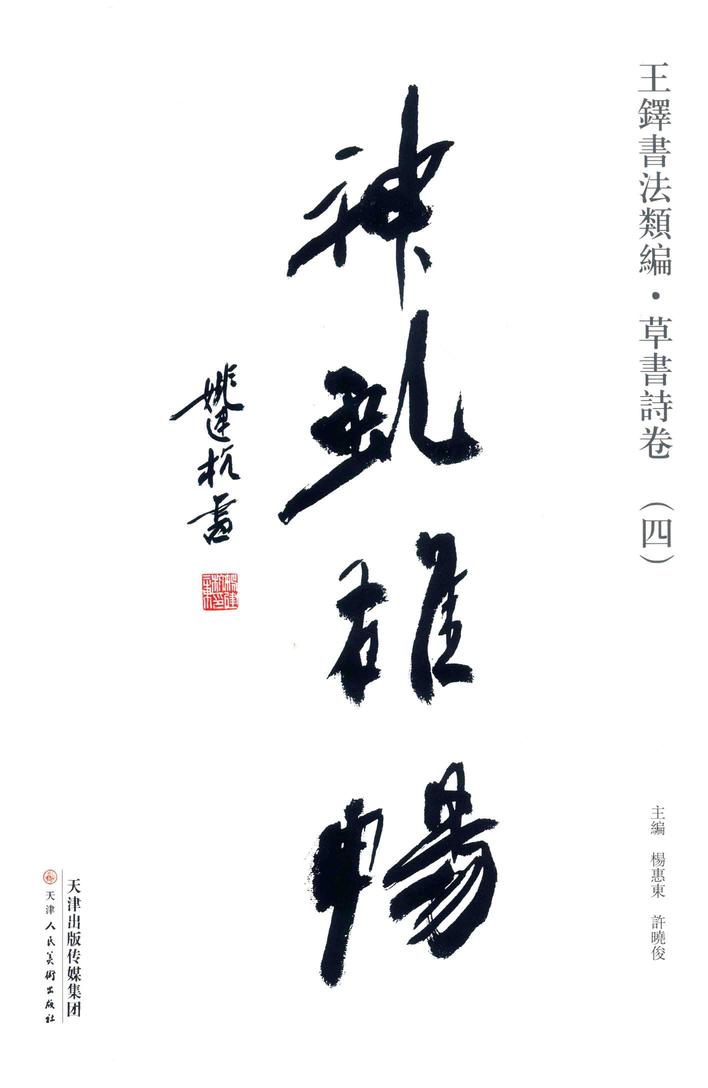 王鐸書法類編・草書詩卷（四）
主編 楊惠東 許曉俊
神雄暢
姚建杭書
天津出版传媒集团
天津人民美術出版社